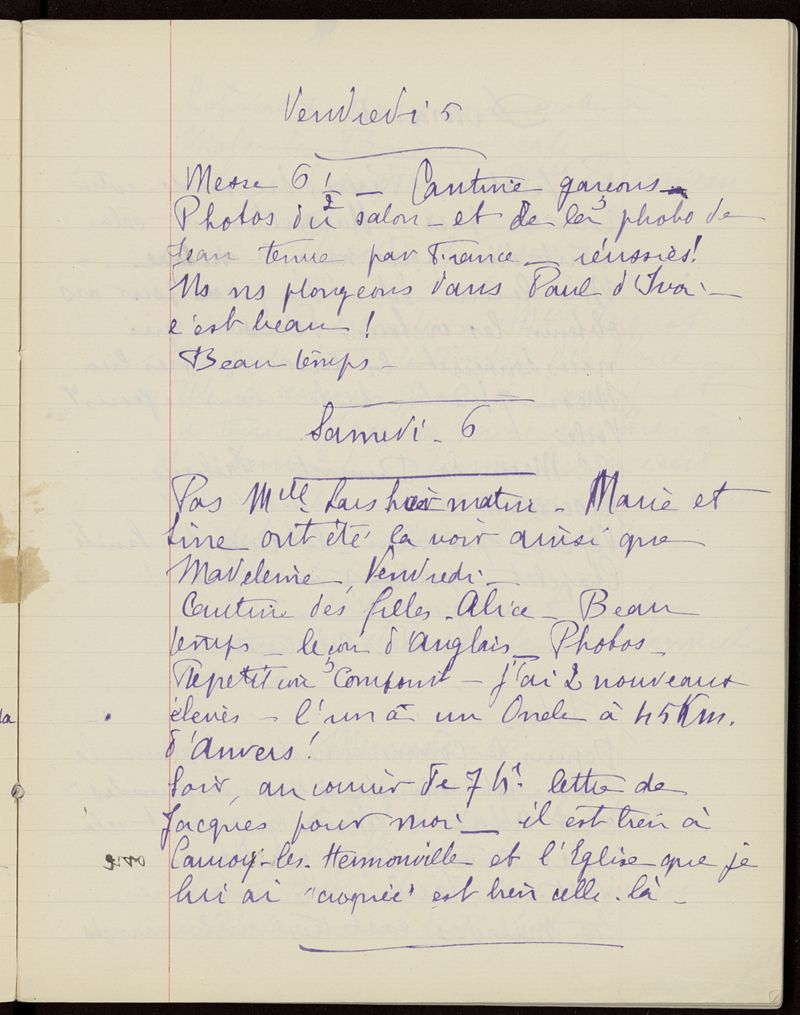 Vendredi 5
Messe 6 1/2 — Cantine garçons —
Photos du salon — et de la photo de
Jean tenue par France — réussies!
Ns ns plongeons dans Paul d'Ivoi —
c'est beau!
Beau temps —
Samedi — 6
Pas Mlle matin — Marie et
Line ont été la voir ainsi que
Madeleine, Vendredi —
Cantine des filles — Alice — Beau
temps — leçon d'Anglais — Photos —
Repetition — J'ai 2 nouveaux
élevès — l'un a un Oncle à 45 Km.
d'Anvers!
Soir, au courrier de 7 hs lettre de
Jacques pour moi — il est bien à
Cauroy-les-Hermonville et l'Eglise que je
lui ai "croquée" est bien celle-là —